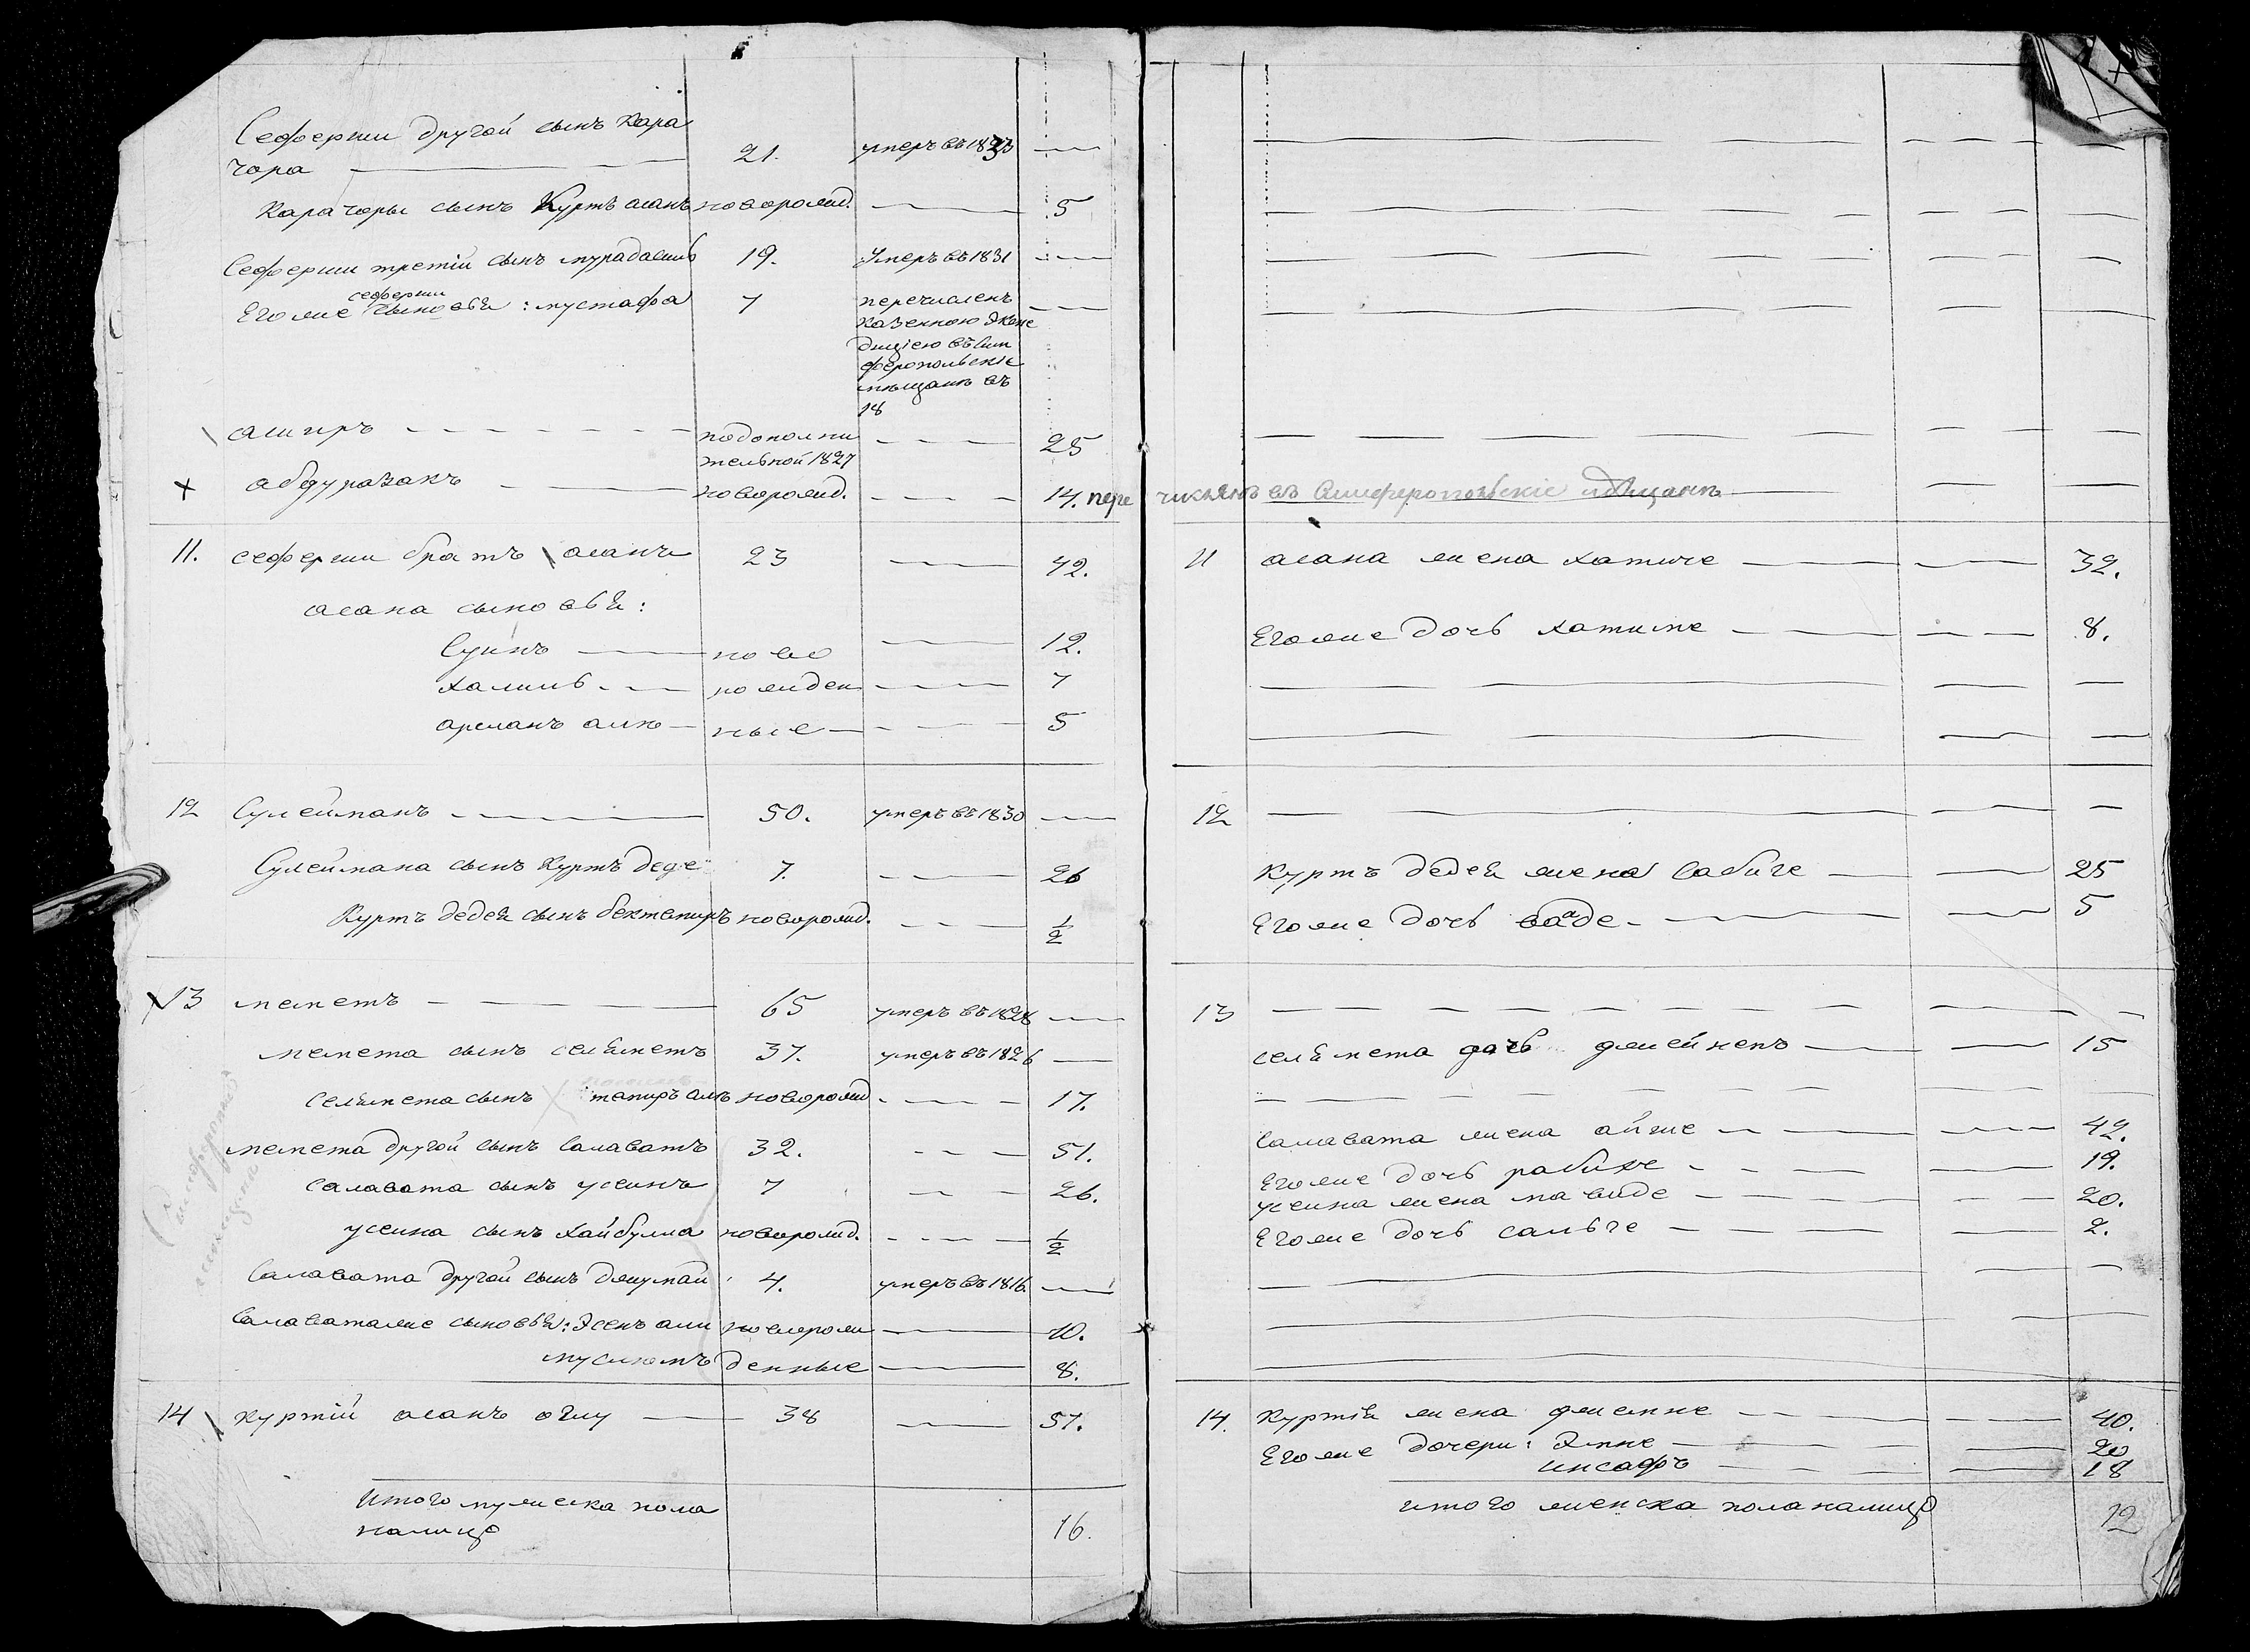 Сеферши другой сынъ Кара
чора 21. умеръ въ 1833
Карачоры сынъ Куртъ асанъ новорожд. 5
Сеферши третій сынъ мурадасиль 19. Умеръ въ 1831
сеферши
Егоже сыновья: мустафа 7 перечисленъ
Казенною Экспе
дицiею въ Сим
феропольскіе
мѣщане въ
18
аширъ подополни 25
тельной 1827
абдуразакъ новорожд. 14. пере численъ въ Симферопольскіе мѣщане
11. сеферши братъ асанъ 23 42.
асана сыновья:
Суинъ ново 12.
халиль рожден 7
арсланъ али ные 5
12 Сулейманъ 50. умеръ въ 1830
Сулеймана сынъ Куртъ деде 7. 26
Куртъ дедея сынъ бектемиръ новорожд. 1/2
13 меметъ 65 умеръ въ 1828
мемета сынъ селяметъ 37. умеръ въ 1826
Селямета сынъ темиръ али новорожд 17.
мемета другой сынъ Салаватъ 32. 51.
Салавата сынъ усеинъ 7 26.
усеина сынъ хайбулла новорожд. 1/2
Салавата другой сынъ джумай 4. умеръ въ 1816.
Салаватаже сыновья: Эсенъ али новорож 10.
муслюмъ денные 8.
14 куртій асанъ оглу 38 57.
Итого мужеска пола
налицо 16.
11 асана жена хатиче 32.
Егоже дочь хатиме 8.
12
Куртъ дедея жена Сабиге 25
Егоже дочь вааде 5
13
селямета дочь джейнепъ 15
Салавата жена айше 42.
Егоже дочь рабихе 19.
усеина жена мавиде 20.
Егоже дочь сальге 2.
14. Куртія жена джемине 40.
Егоже дочери: Эмине 20
инсафъ 18
итого женска пола налицо 12